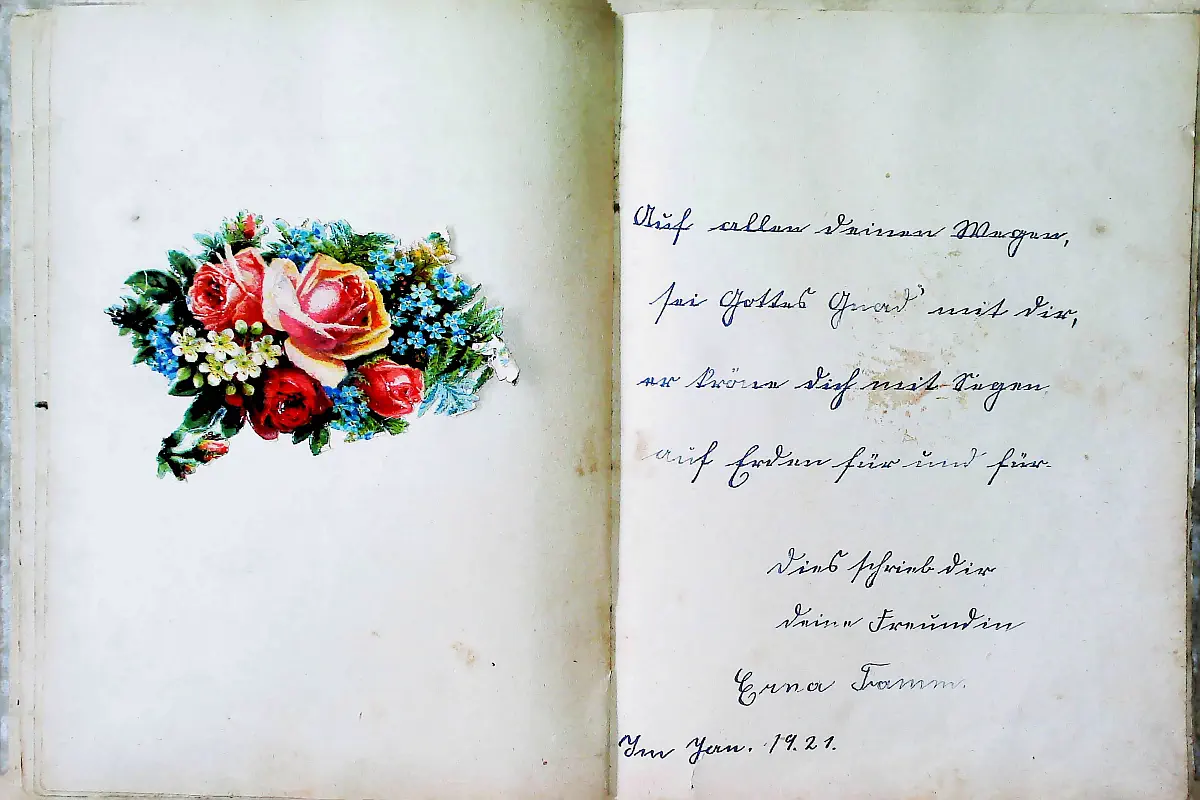 Auf allen deinen Wegen,
sei Gottes Gnad' mit dir,
er kröne dich mit Segen
auf Erden für und für.
Dies schrieb dir
deine Freundin
Erna Tamm.
Im Jan. 19.21.